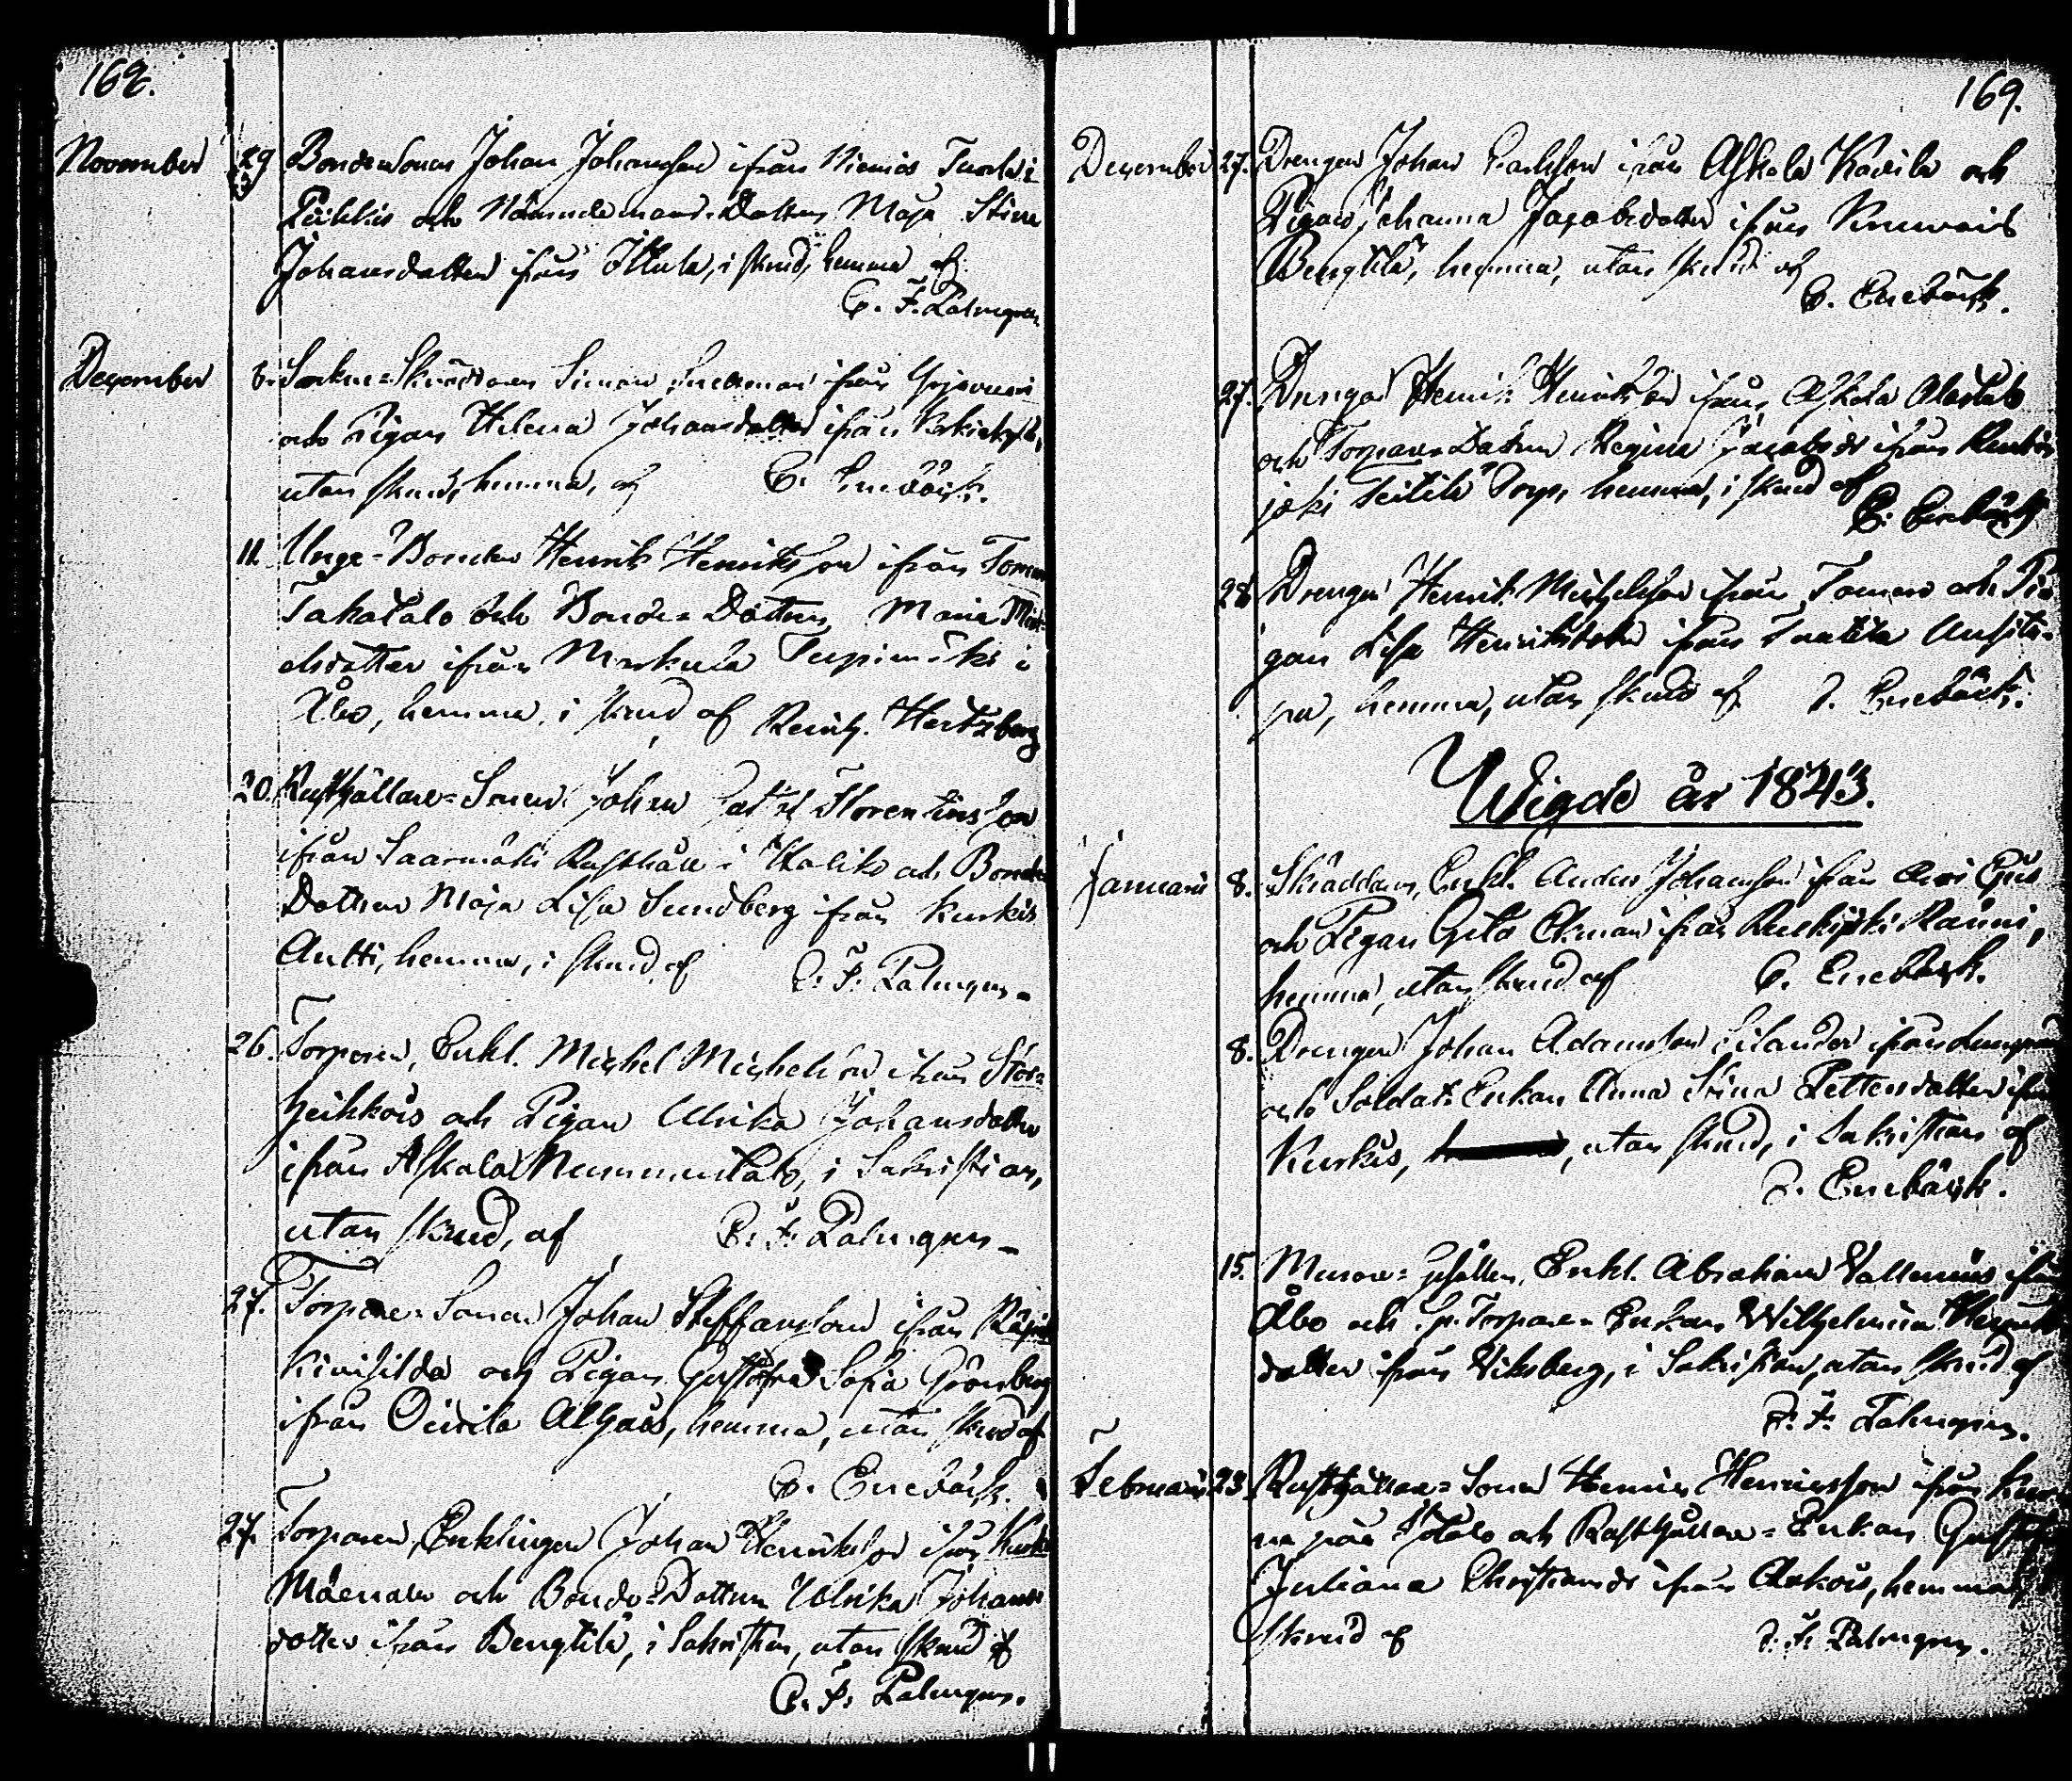 168.
November 29 Bondesonen Johan Johansson ifrån Niemis Tuorla i
Piikkis och Nämndemans Dottren Maja Stina
Johansdotter ifrån Ittala, i skrud, hemma af
C. F. Palmgren
December 8. Sockne=Skräddaren Simon ifrån
och Pigan Helena Johansdotter ifrån
utan skrud, hemma, af C. Enebäck.
11. Unge=Bonden Henrik Henriksson ifrån
Takatalo och Bonde=Dottren Maria Mich=
elsdotter ifrån Markula i
Åbo, hemma, i skrud af Reinh. Hertzberg
20. Rusthållare=Sonen Johan Florentinsson
ifrån Saarmäki Rusthåll i Haliko och Bonde
Dottren Maja Lisa Sundberg ifrån Kurkis
Antti, hemma, i skrud af C. F. Palmgren
26. Torparen, Enkl. Michel Michelsson ifrån Stor=
heikkois och Pigan Ulrika Johansdotter
ifrån Askala Nummentalo, i Sakristian,
utan skrud, af C. F. Palmgren
27. Torpare=Sonen Johan Steffansson ifrån
och Pigan Gustafva Sofia Grönberg
ifrån Oinila Algars, hemma, utan skrud af
C. Enebäck.
27. Torparen, Enklingen Johan Henriksson ifrån
Mäenala och Bonde=Dottren Ulrika Johans
dotter ifrån Bengtilä, i Sakristian, utan skrud af
C. F. Palmgren.
169.
December 27. Drengen Johan Carlsson ifrån Askala Kavila och
Pigan Johanna Jacobsdotter ifrån
Bengtilä, hemma, utan skrud af
C. Enebäck.
27. Drengen Henrik Henriksson ifrån Askala Alastalo
och Torpare=Dottren Regina Jacobsdr ifrån
joki Seitilä Torp, hemma, i skrud af
C. Enebäck
28 Drengen Henrik Michelsson ifrån och Pi=
gan Lisa Henriksdotter ifrån
pa, hemma, utan skrud af C. Enebäck.
Wigde år 1843.
Januarii 8. Skräddaren, Enkl. Anders Johansson ifrån
och Pigan Greta Ekman ifrån
hemma, utan skrud af C. Enebäck.
8. Drengen Johan Adamsson Silander ifrån
och Soldats Enkan Anna Stina Pettersdotter ifrån
Kurkis, utan skrud, i Sakristian af
C. Enebäck.
15. Murare=Gesällen, Enkl. Abraham Vallenius ifrån
Åbo och Torpare=Enkan Wilhelmina Henriks
dotter ifrån Viksberg, i Sakristian, utan skrud af
C. F. Palmgren.
Februarii 23. Rusthållare=Sonen Henric Henricsson ifrån
Ylitalo och Rusthållare=Enkan
Juliana Christiansdr ifrån Aukois, hemma,
skrud af C. F. Palmgren.